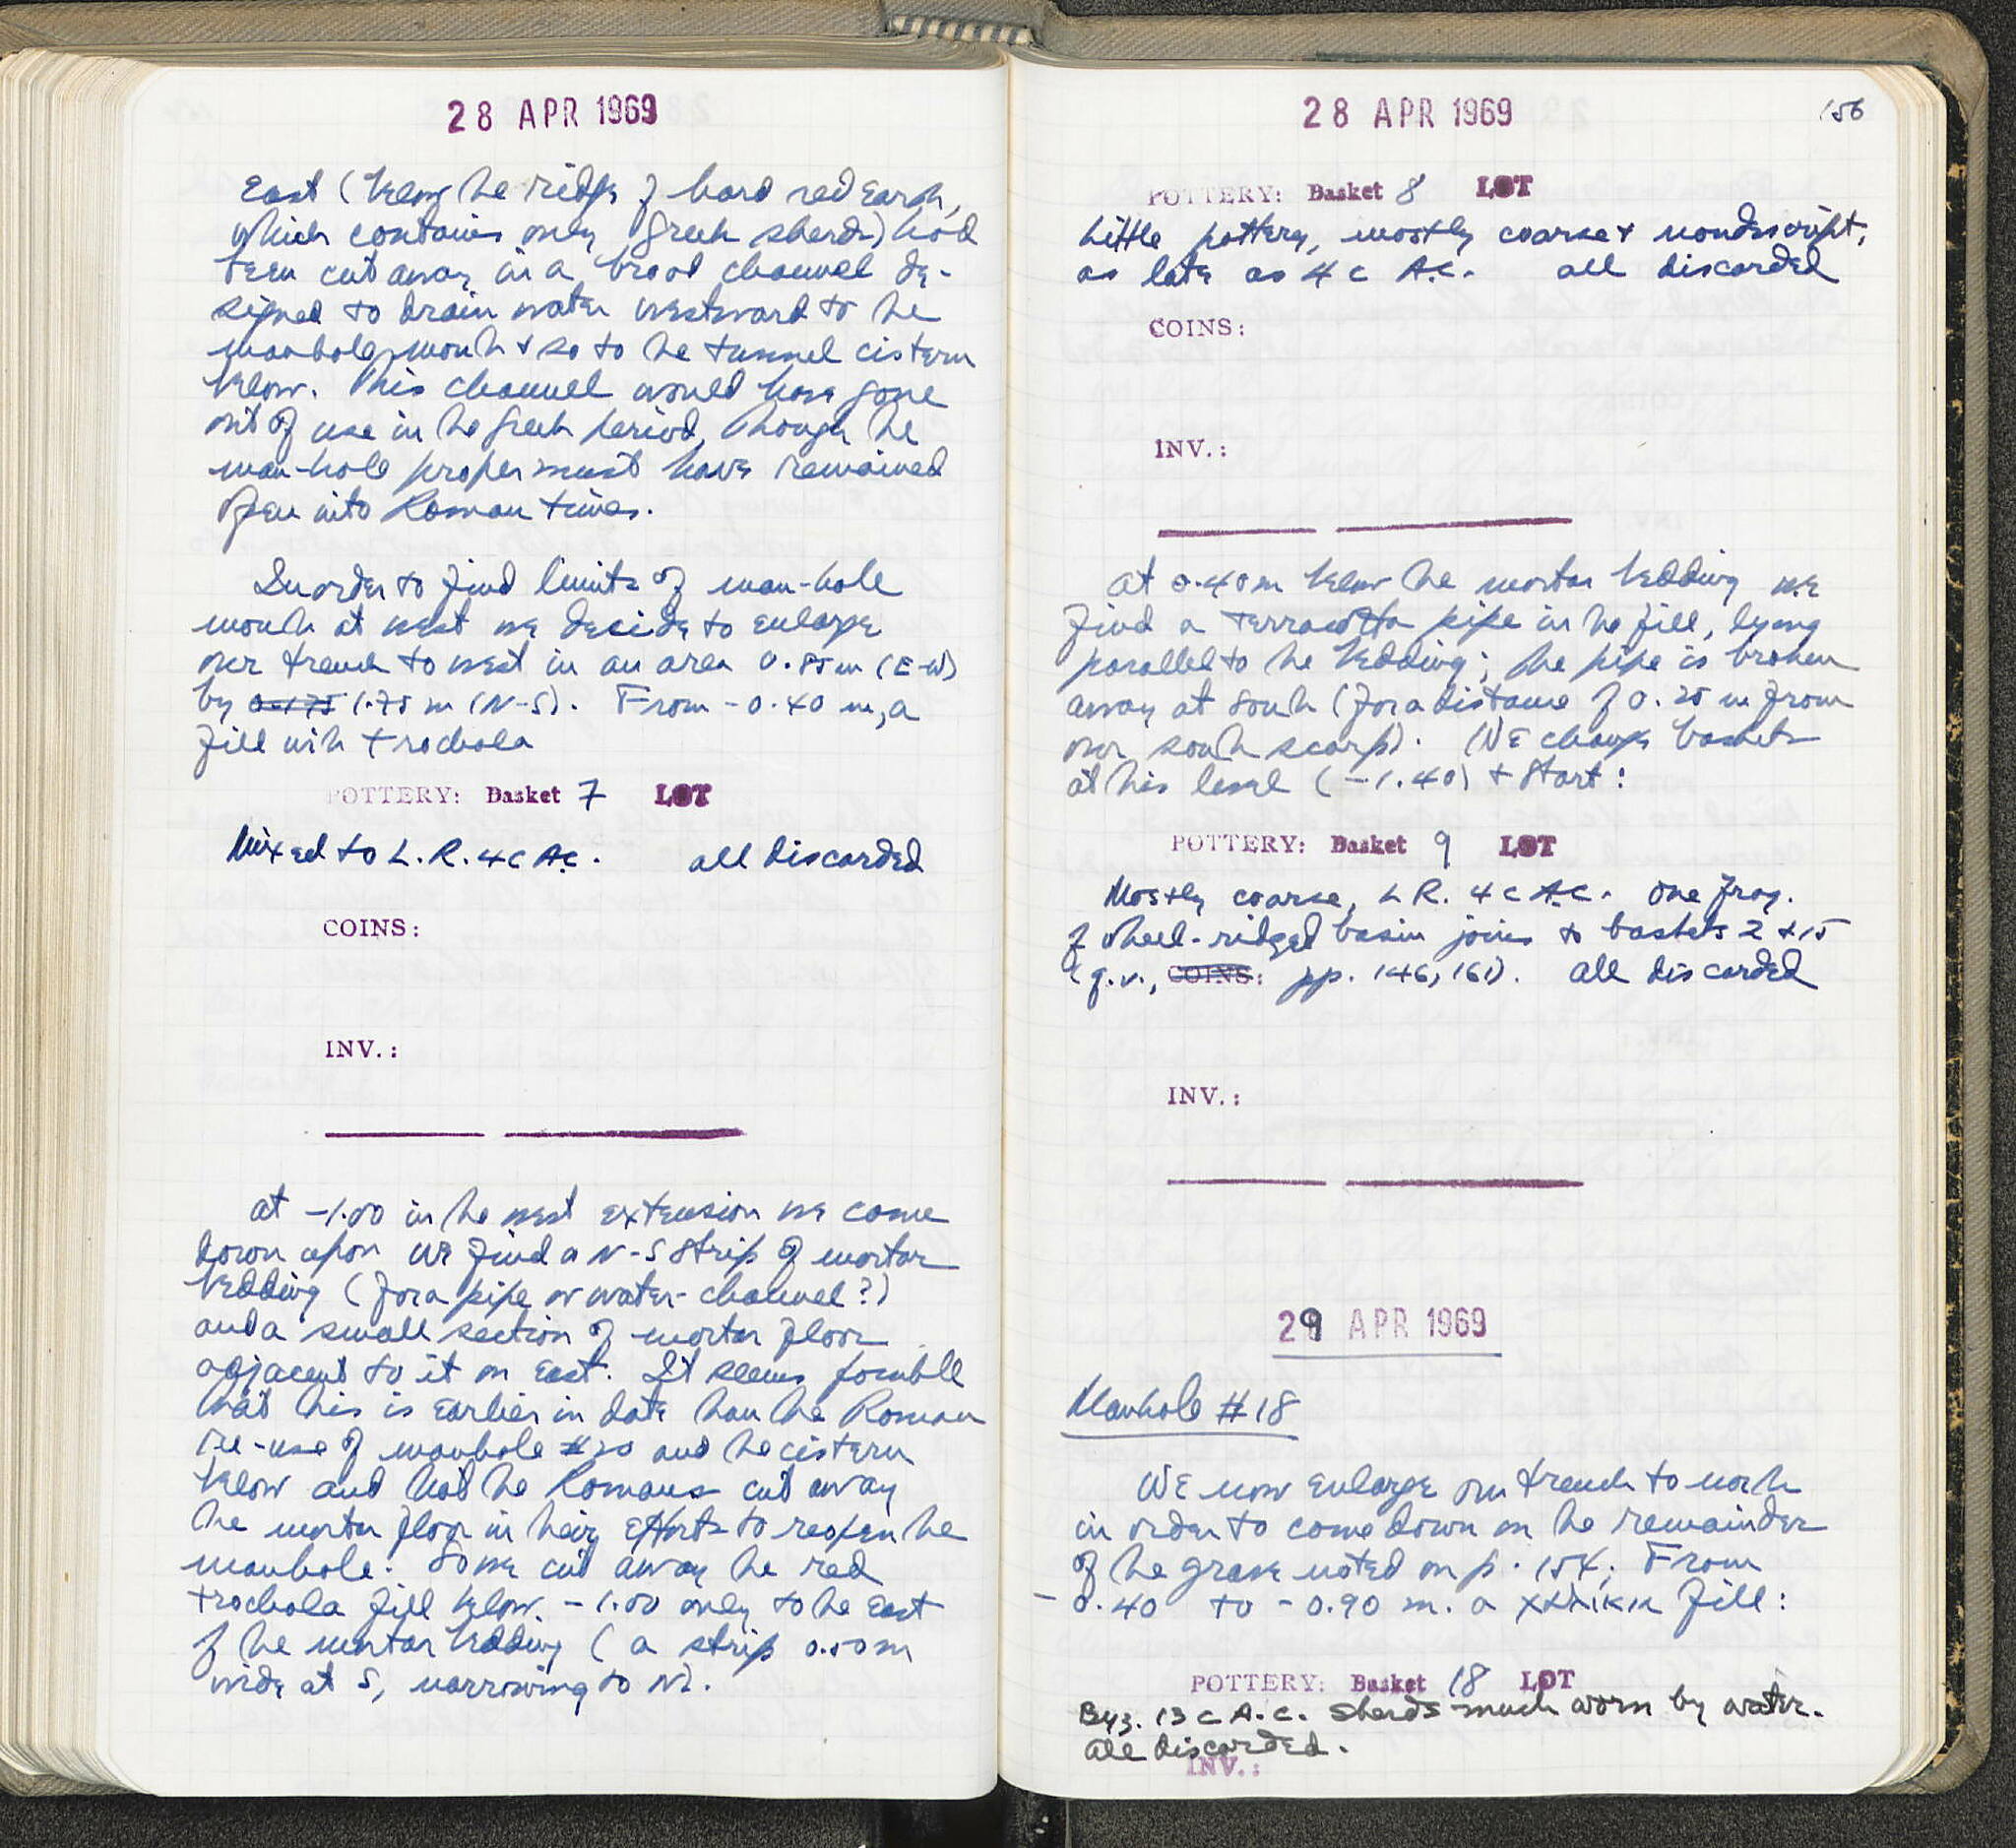 28 APR 1969
East (below the ridge of hard red earth,
which contains only Greek sherds) had
been cut away in a broad channel de-
signed to drain water westward to the
manhole mouth & so to the tunnel cistern
below. This channel would have gone
out of use in the Greek period, though the
man-hole proper must have remained
open into Roman times.
In order to find limits of man-hole
mouth at west we decide to enlarge
our trench to west in an area 0.85 m (E-W)
by 0.175 1.75 m (N-S). From -0.40 m, a
fill with trochala
POTTERY: Basket 7 LOT
Mixed to L.R. 4 c A.C. all discarded
COINS:
INV.:
at -1.00 in the west extension we come
down upon we find a N-S strip of mortar
bedding (for a pipe or water-channel?)
and a small section of mortar floor
adjacent to it on East. It seems possible
that this is earlier in date than the Roman
re-use of manhole #20 and the cistern
below and that the Romans cut away
the mortar floor in their efforts to reopen the
manhole. So we cut away the red
trochala fill below -1.00 only to the east
of the mortar bedding (a strip 0.50 m
wide at S, narrowing to N).
28 APR 1969
156
POTTERY: Basket 8 LOT
Little pottery, mostly coarse & nondescript,
as late as 4 c A.C. all discarded
COINS:
INV.:
at 0.40 m below the mortar bedding we
find a terracotta pipe in the fill, lying
parallel to the bedding; the pipe is broken
away at south (for a distance of 0.25 m from
our south scarp). We change baskets
at this level (-1.40) & start:
POTTERY: Basket 9 LOT
Mostly coarse, L R. 4 c A.C. One frag.
of wheel-ridged basin joins to baskets 2 & 15
(q.v., COINS: pp. 146, 161). all discarded
INV.:
29 APR 1969
Manhole #18
We now enlarge our trench to north
in order to come down on the remainder
of the grave noted on p. 154. From
-0.40 to -0.90 m. a χαλικι fill:
POTTERY: Basket 18 LOT
Byz. 13 c A.C. Sherds much worn by water.
All discarded.
INV.: